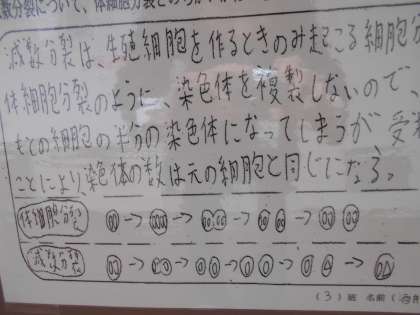 数分裂について、体細胞分裂とのちがいが
減数分裂は、生殖細胞を作るときのみ起こる細胞
体細胞分裂のように、染色体を複製しないので、
もとの細胞の半分の染色体になってしまうが受
ことにより染色体の数は元の細胞と同じになる。
体細胞分裂
減数分裂
(3)班 名前(